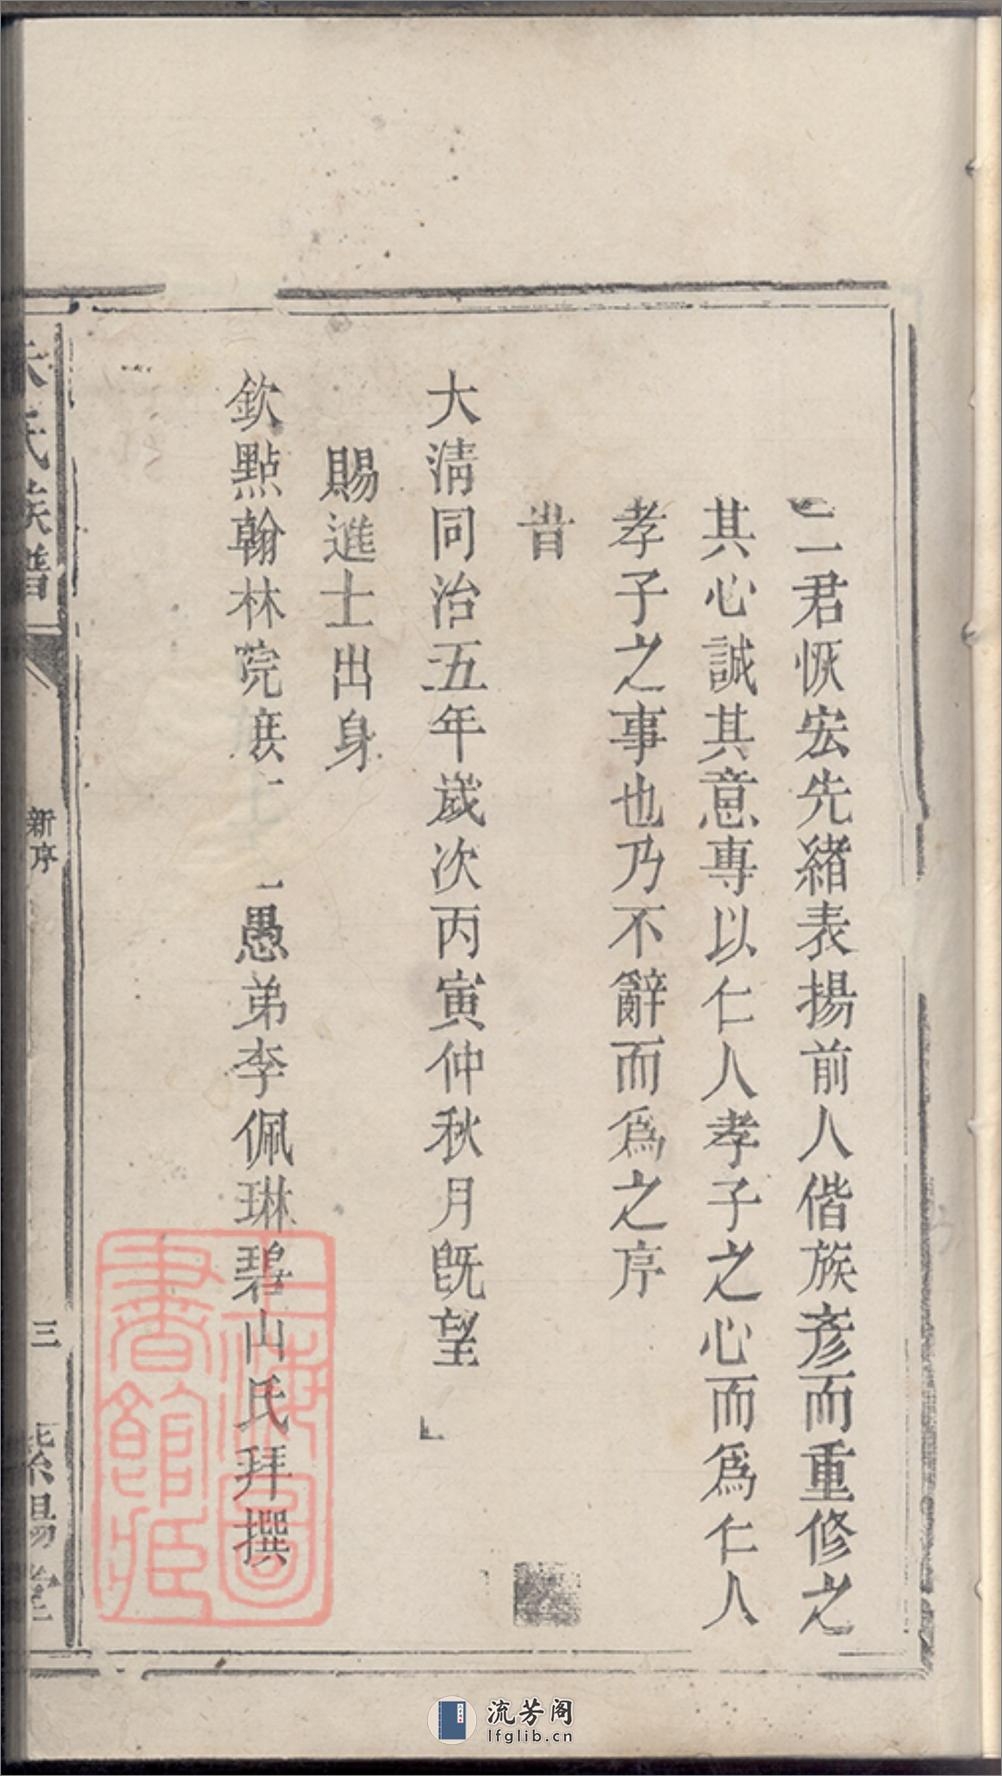 二君恢宏先緒表揚前人偕族彥而重修之
其心誠其意專以仁人孝子之心而爲仁人
孝子之事也乃不辭而爲之序
旹
大淸同治五年歲次丙寅仲秋月旣望
賜進士出身
欽點翰林院庶 愚弟李佩琳碧山氏拜撰
朱氏族譜
新序
三
紫陽堂
上海圖書館藏
流芳阁
lfglib.cn